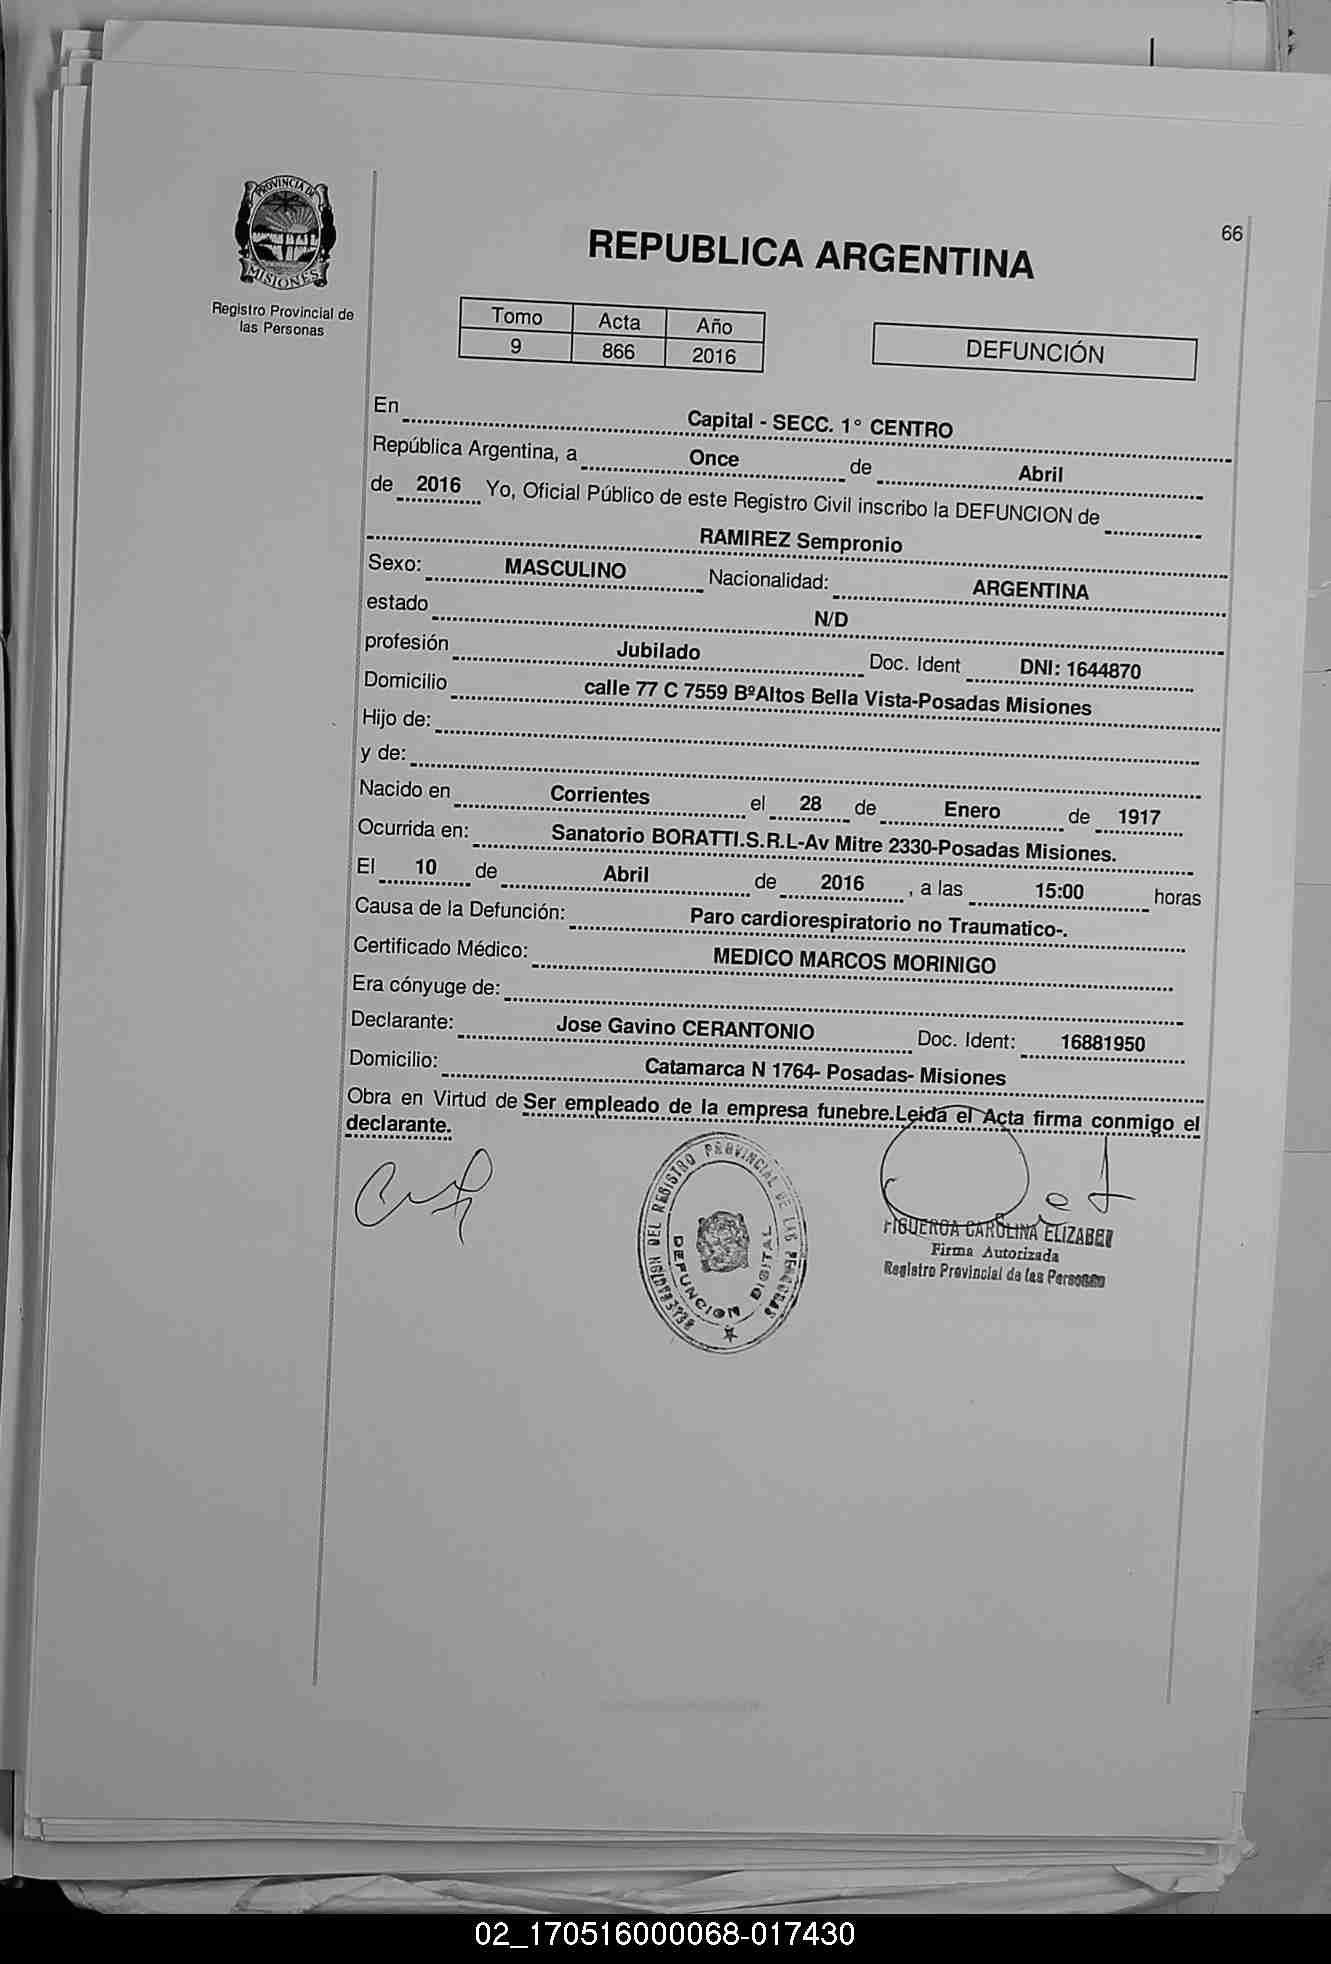 66
PROVINCIA DE
MISIONES
Registro Provincial de
las Personas
REPUBLICA ARGENTINA
Tomo Acta Año
9 866 2016
DEFUNCIÓN
En Capital - SECC. 1° CENTRO
República Argentina, a Once de Abril
de 2016 Yo, Oficial Público de este Registro Civil inscribo la DEFUNCION de
RAMIREZ Sempronio
Sexo: MASCULINO Nacionalidad: ARGENTINA
estado N/D
profesión Jubilado Doc. Ident DNI: 1644870
Domicilio calle 77 C 7559 BºAltos Bella Vista-Posadas Misiones
Hijo de:
y de:
Nacido en Corrientes el 28 de Enero de 1917
Ocurrida en: Sanatorio BORATTI.S.R.L-Av Mitre 2330-Posadas Misiones.
El 10 de Abril de 2016 , a las 15:00 horas
Causa de la Defunción: Paro cardiorespiratorio no Traumatico-.
Certificado Médico: MEDICO MARCOS MORINIGO
Era cónyuge de:
Declarante: Jose Gavino CERANTONIO Doc. Ident: 16881950
Domicilio: Catamarca N 1764- Posadas- Misiones
Obra en Virtud de Ser empleado de la empresa funebre.Leida el Acta firma conmigo el
declarante.
DEL REGISTRO PROVINCIAL DE LAS PERSONAS
DEFUNCION DIGITAL
FIGUEROA CAROLINA ELIZABET
Firma Autorizada
Registro Provincial de las Personas
02_170516000068-017430